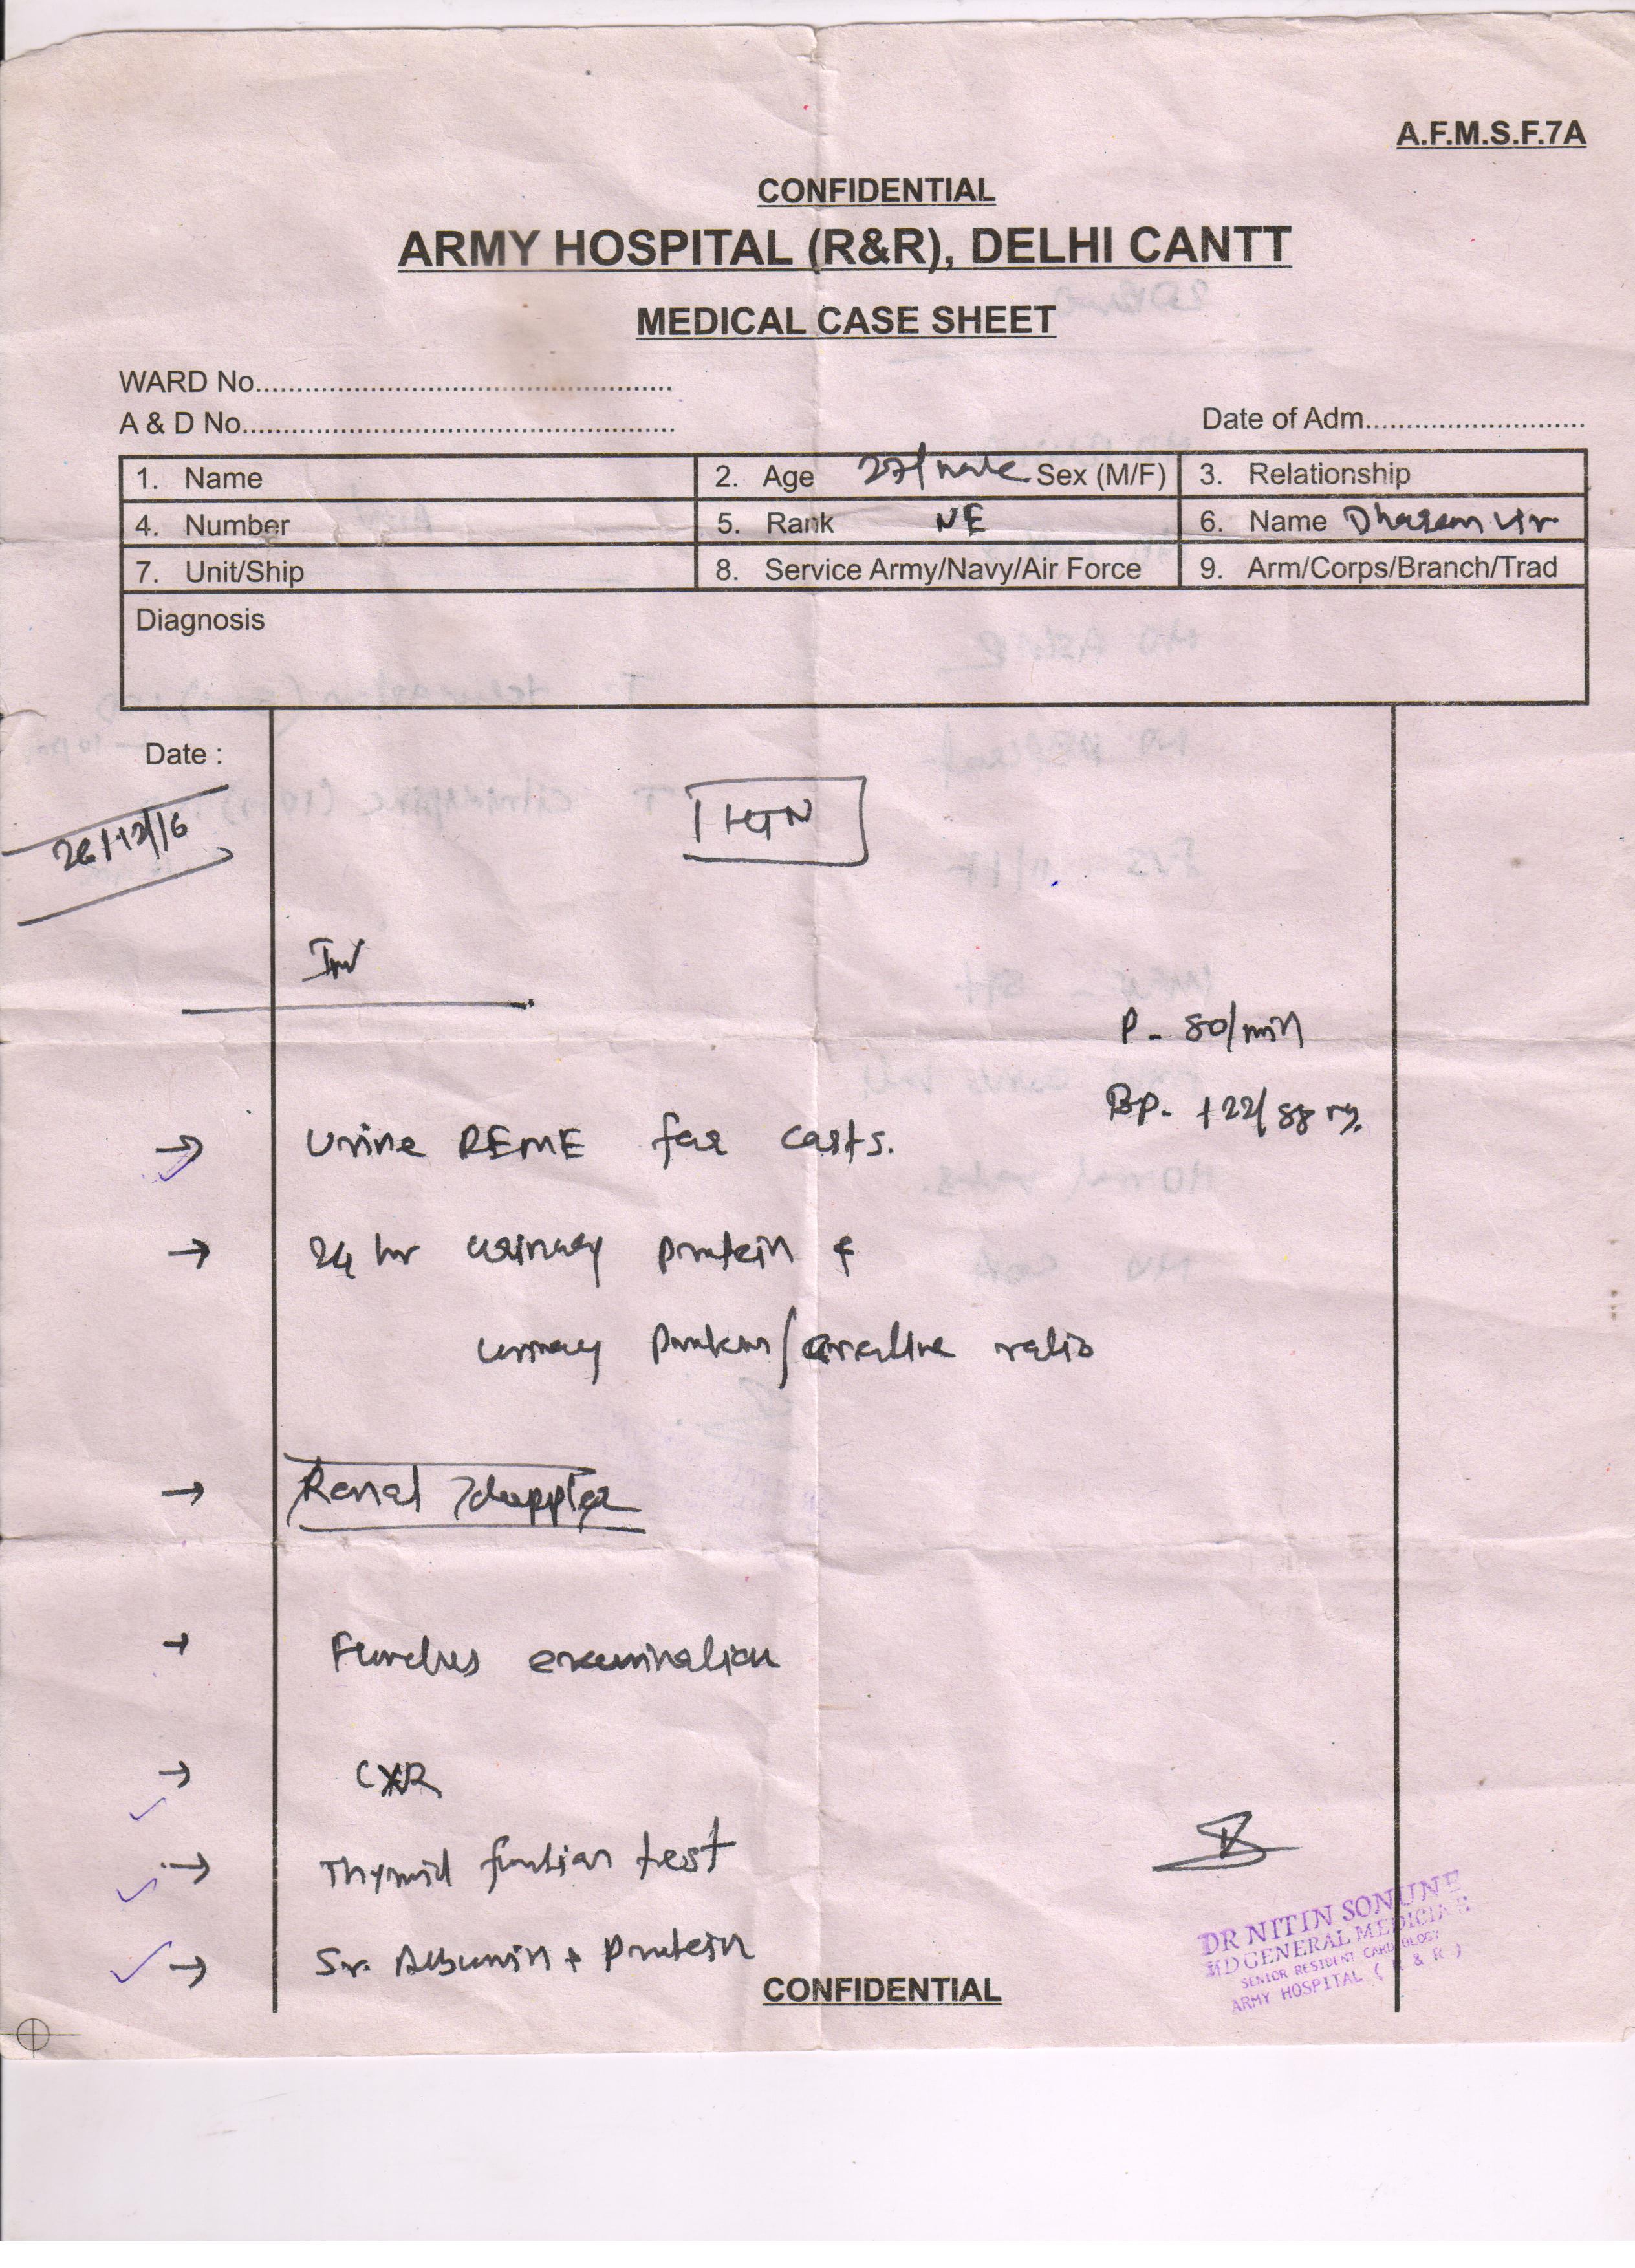 A.F.M.S.F.7A
CONFIDENTIAL
ARMY HOSPITAL (R&R), DELHI CANTT
MEDICAL CASE SHEET
WARD No.
A & D No.
Date of Adm.
1. Name
2. Age 27/male Sex (M/F)
3. Relationship
4. Number
5. Rank NE
6. Name Dharam Vir
7. Unit/Ship
8. Service Army/Navy/Air Force
9. Arm/Corps/Branch/Trad
Diagnosis
Date :
26/12/16
HTN
Inv
P- 80/min
BP. 122/88
→ Urine REME for casts.
→ 24 hr urinary protein &
urinary protein/creatine ratio
→ Renal doppler
→ Fundus examination
→ CXR
→ Thyroid function test
→ Sr. Albumin + Protein
DR NITIN SONUNE
MD GENERAL MEDICINE
SENIOR RESIDENT CARDIOLOGY
ARMY HOSPITAL (R & R)
CONFIDENTIAL